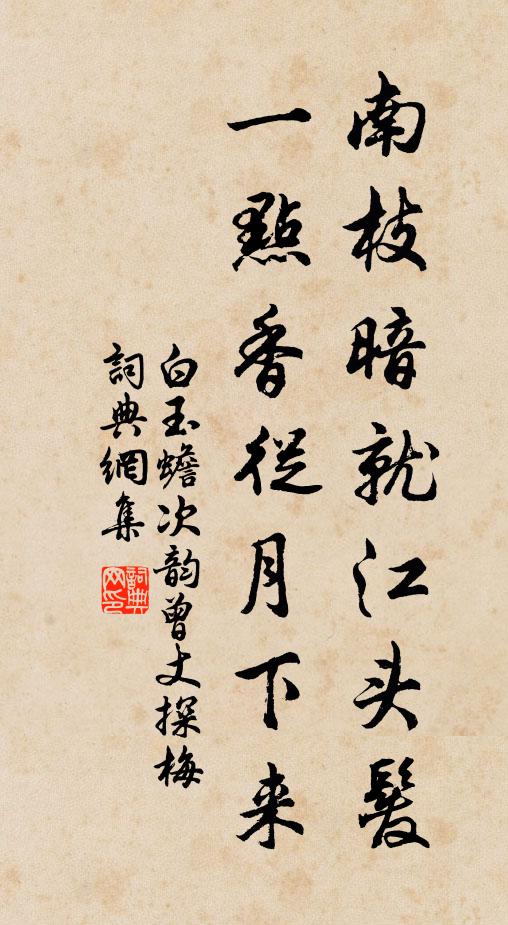 南枝暗就江头髮
一點香從月下来
白玉蟾次韵曾丈探梅
詞典網集
詞典网印